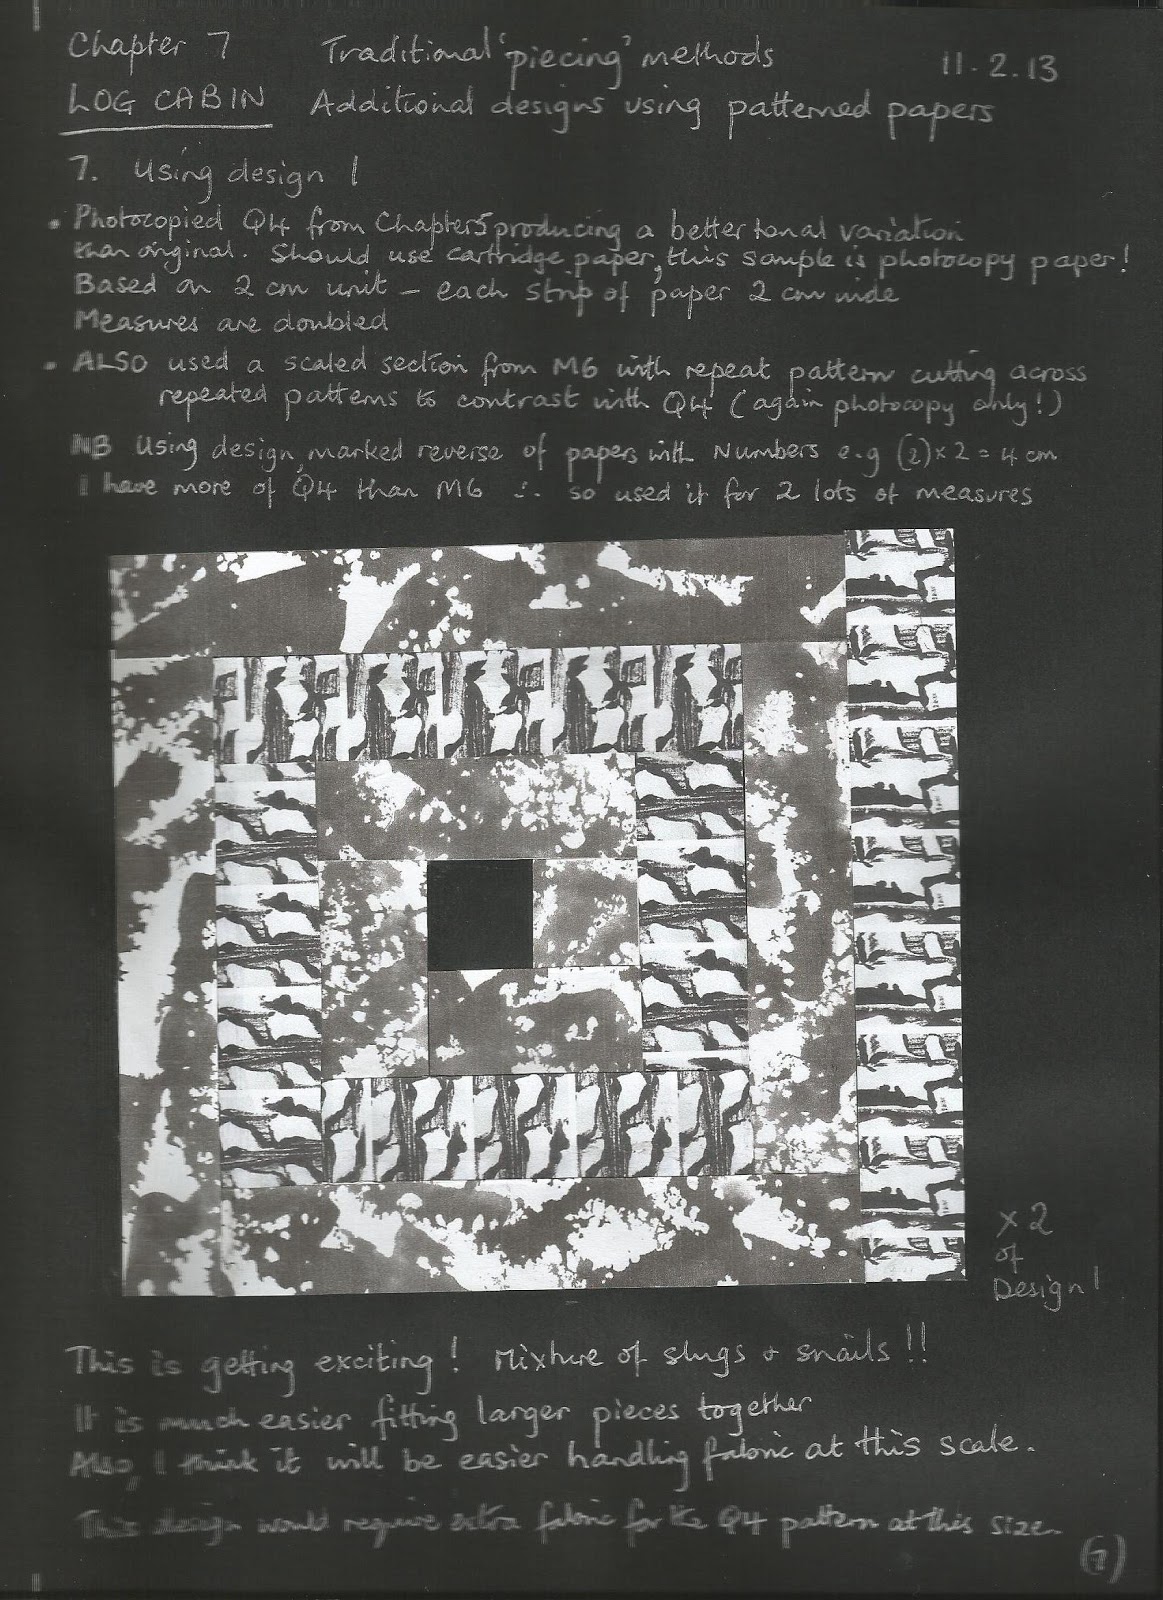 Chapter 7 Traditional 'piecing' methods 11.2.13
LOG CABIN Additional designs using patterned papers
7. Using design 1
• Photocopied Q4 from Chapter 5 producing a better tonal variation
than original. Should use cartridge paper, this sample is photocopy paper!
Based on 2 cm unit - each strip of paper 2 cm wide
Measures are doubled
• ALSO used a scaled section from M6 with repeat pattern cutting across
repeated patterns to contrast with Q4 (again photocopy only!)
NB Using design, marked reverse of papers with Numbers e.g (2)x2 = 4 cm
I have more of Q4 than M6 ∴ so used it for 2 lots of measures
x 2
of
Design 1
This is getting exciting! Mixture of slugs & snails!!
It is much easier fitting larger pieces together
Also, I think it will be easier handling fabric at this scale.
This design would require extra fabric for the Q4 pattern at this size.